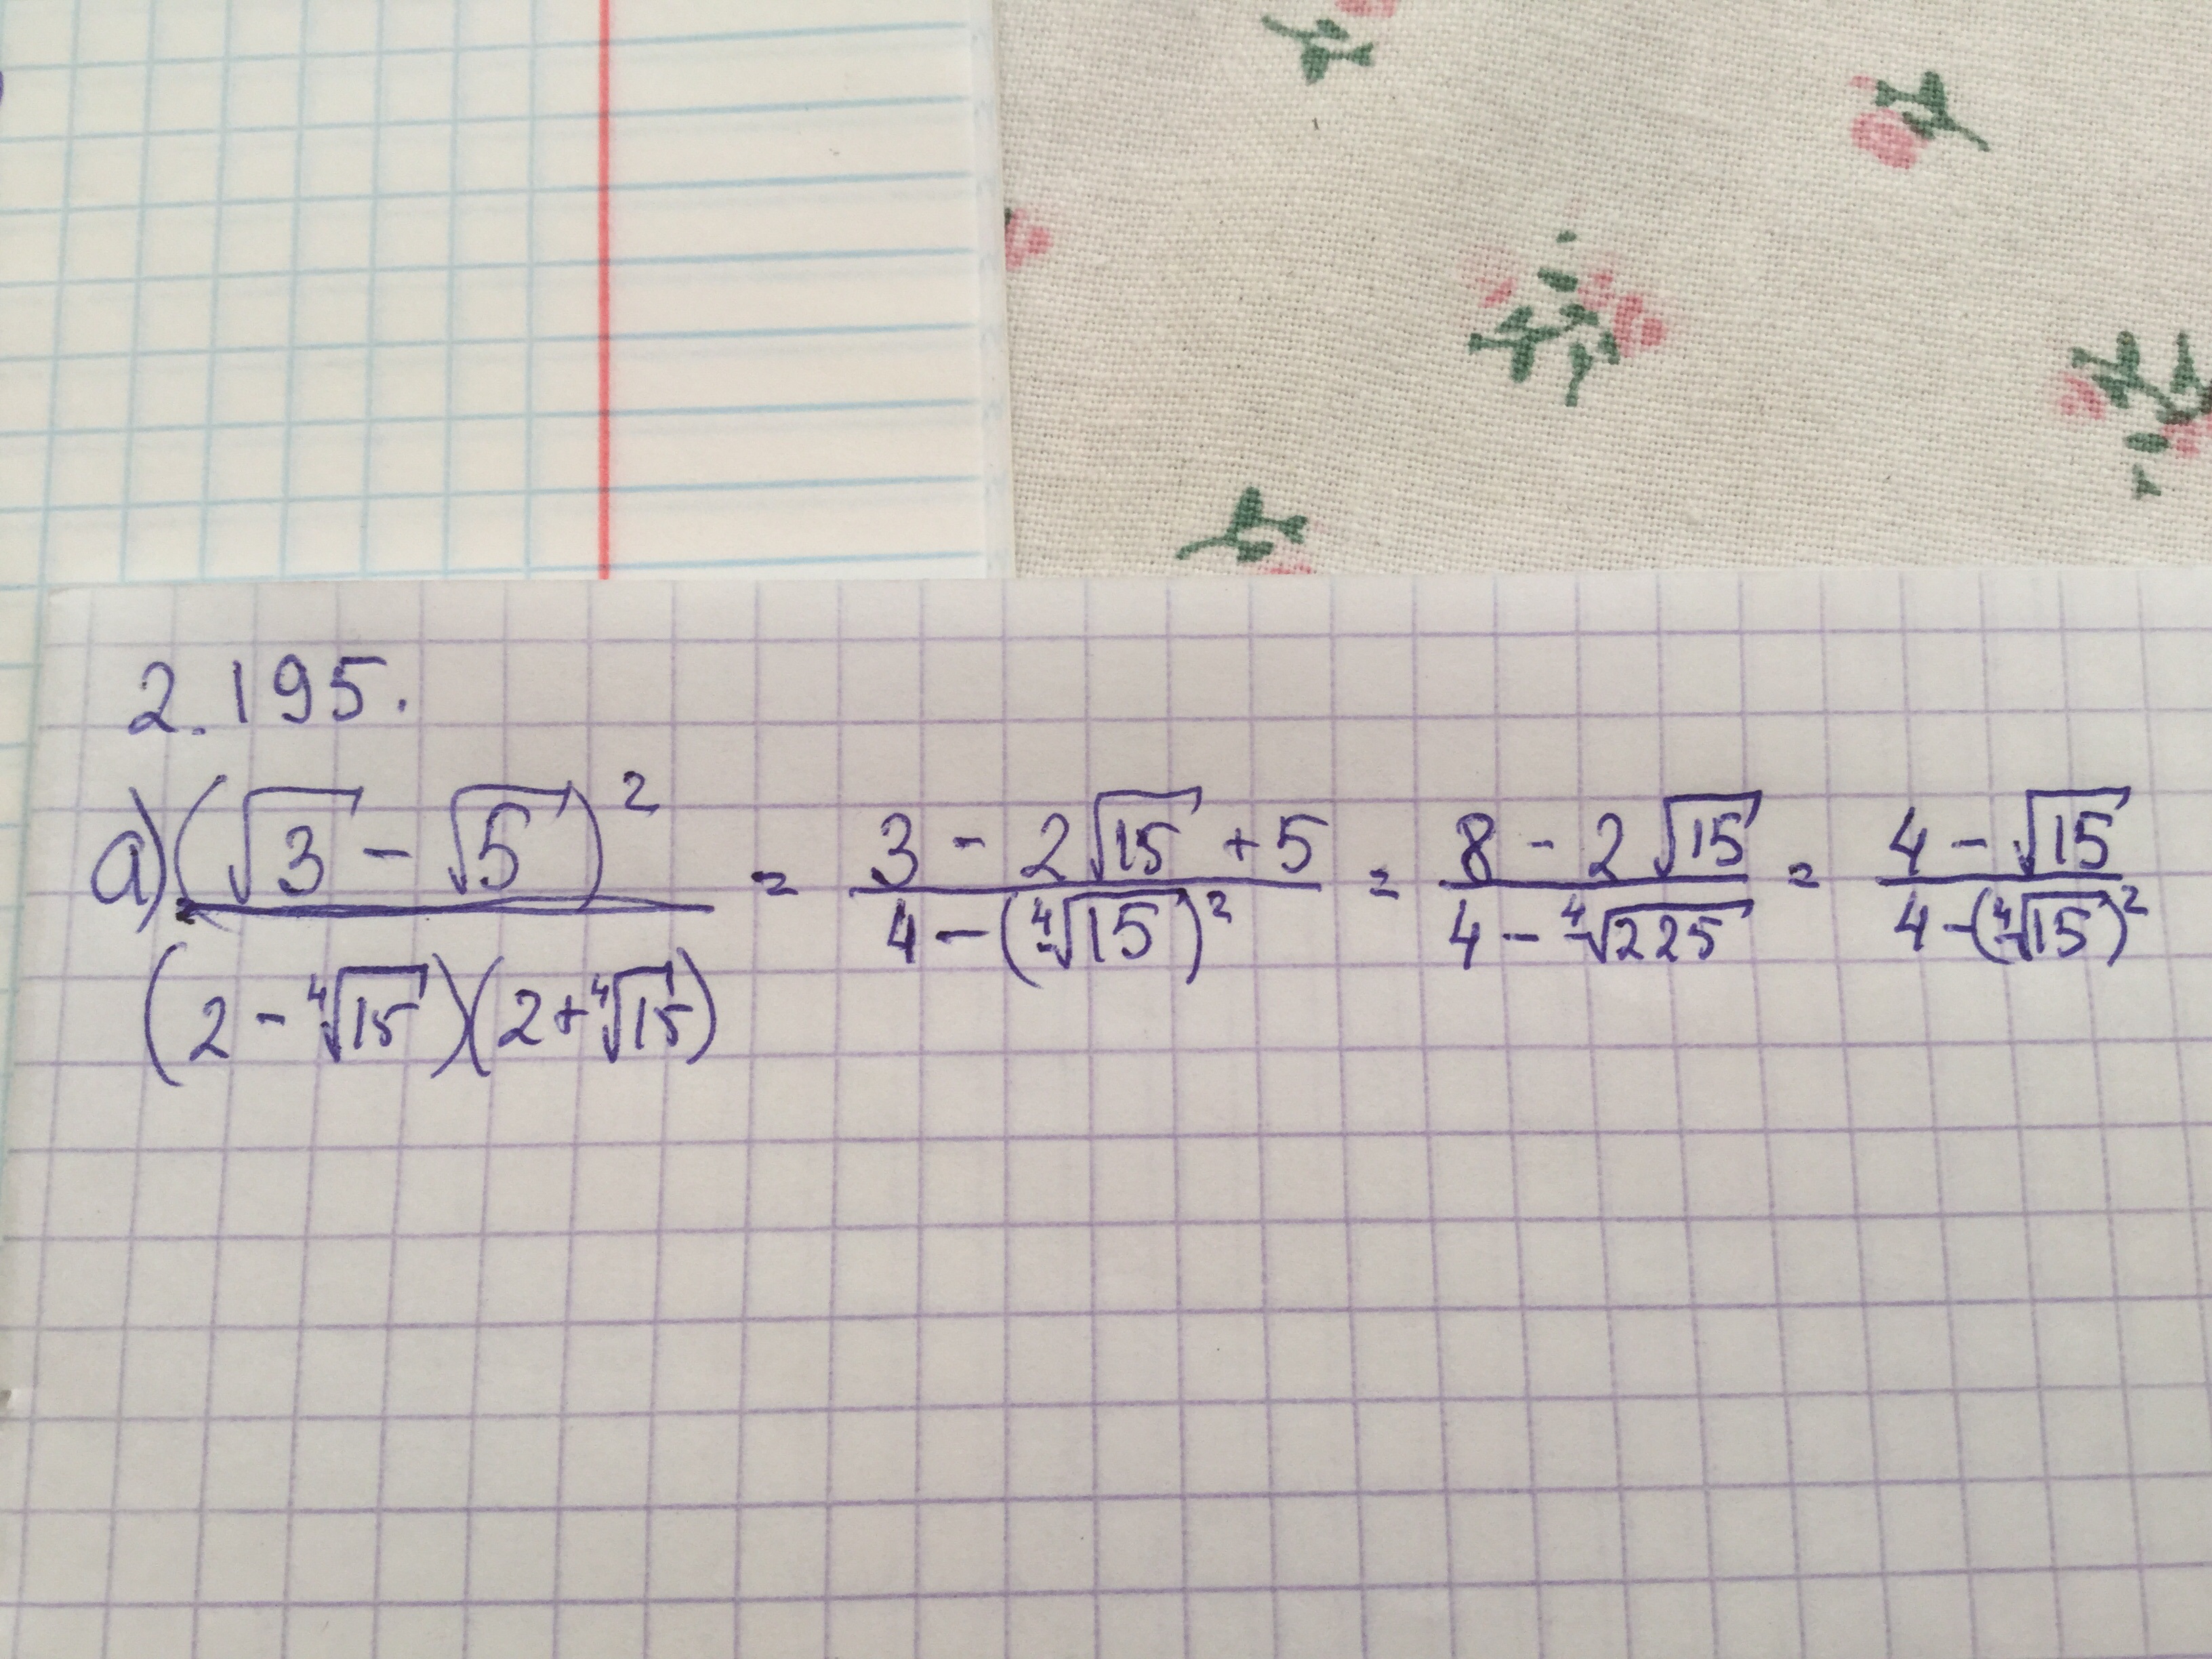 2.195.
a) (√3 - √5)² / (2 - ⁴√15)(2 + ⁴√15) = (3 - 2√15 + 5) / (4 - (⁴√15)²) = (8 - 2√15) / (4 - ⁴√225) = (4 - √15) / (4 - (⁴√15)²)